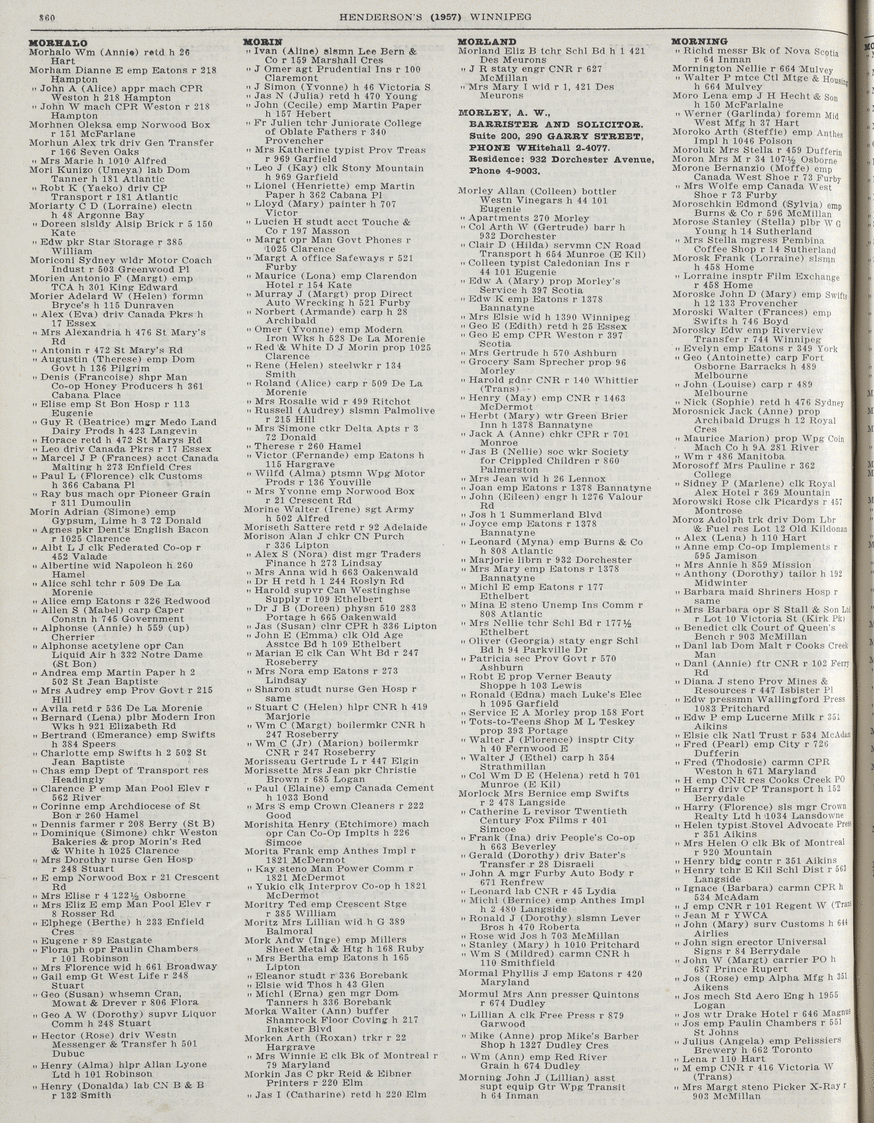 860
HENDERSON'S (1957) WINNIPEG
MORHALO
Morhalo Wm (Annie) retd h 26
Hart
Morham Dianne E emp Eatons r 218
Hampton
" John A (Alice) appr mach CPR
Weston h 218 Hampton
" John W mach CPR Weston r 218
Hampton
Morhnen Oleksa emp Norwood Box
r 151 McFarlane
Morhun Alex trk driv Gen Transfer
r 166 Seven Oaks
" Mrs Marie h 1010 Alfred
Mori Kunizo (Umeya) lab Dom
Tanner h 181 Atlantic
" Robt K (Yaeko) driv CP
Transport r 181 Atlantic
Moriarty C D (Lorraine) electn
h 48 Argonne Bay
" Doreen slsldy Alsip Brick r 5 150
Kate
" Edw pkr Star Storage r 385
William
Moriconi Sydney wldr Motor Coach
Indust r 503 Greenwood Pl
Morien Antonio F (Margt) emp
TCA h 301 King Edward
Morier Adelard W (Helen) formn
Bryce's h 115 Dunraven
" Alex (Eva) driv Canada Pkrs h
17 Essex
" Mrs Alexandria h 476 St Mary's
Rd
" Antonin r 472 St Mary's Rd
" Augustin (Therese) emp Dom
Govt h 136 Pilgrim
" Denis (Francoise) shpr Man
Co-op Honey Producers h 361
Cabana Place
" Elise emp St Bon Hosp r 113
Eugenie
" Guy R (Beatrice) mgr Medo Land
Dairy Prods h 423 Langevin
" Horace retd h 472 St Marys Rd
" Leo driv Canada Pkrs r 17 Essex
" Marcel J P (Frances) acct Canada
Malting h 273 Enfield Cres
" Paul L (Florence) clk Customs
h 366 Cabana Pl
" Ray bus mach opr Pioneer Grain
r 311 Dumoulin
Morin Adrian (Simone) emp
Gypsum, Lime h 3 72 Donald
" Agnes pkr Dent's English Bacon
r 1025 Clarence
" Albt L J clk Federated Co-op r
452 Valade
" Albertine wid Napoleon h 260
Hamel
" Alice schl tchr r 509 De La
Morenie
" Alice emp Eatons r 326 Redwood
" Allen S (Mabel) carp Caper
Constn h 745 Government
" Alphonse (Annie) h 559 (up)
Cherrier
" Alphonse acetylene opr Can
Liquid Air h 332 Notre Dame
(St Bon)
" Andrea emp Martin Paper h 2
502 St Jean Baptiste
" Mrs Audrey emp Prov Govt r 215
Hill
" Avila retd r 536 De La Morenie
" Bernard (Lena) plbr Modern Iron
Wks h 921 Elizabeth Rd
" Bertrand (Emerance) emp Swifts
h 384 Speers
" Charlotte emp Swifts h 2 502 St
Jean Baptiste
" Chas emp Dept of Transport res
Headingly
" Clarence P emp Man Pool Elev r
562 River
" Corinne emp Archdiocese of St
Bon r 260 Hamel
" Dennis farmer r 208 Berry (St B)
" Dominique (Simone) chkr Weston
Bakeries & prop Morin's Red
& White h 1025 Clarence
" Mrs Dorothy nurse Gen Hosp
r 248 Stuart
" E emp Norwood Box r 21 Crescent
Rd
" Mrs Elise r 4 122½ Osborne
" Mrs Eliz E emp Man Pool Elev r
8 Rosser Rd
" Elphege (Berthe) h 233 Enfield
Cres
" Eugene r 89 Eastgate
" Flora ph opr Paulin Chambers
r 101 Robinson
" Mrs Florence wid h 661 Broadway
" Gail emp Gt West Life r 248
Stuart
" Geo (Susan) whsemn Cran,
Mowat & Drever r 806 Flora
" Geo A W (Dorothy) supvr Liquor
Comm h 248 Stuart
" Hector (Rose) driv Westn
Messenger & Transfer h 501
Dubuc
" Henry (Alma) hlpr Allan Lyone
Ltd h 101 Robinson
" Henry (Donalda) lab CN B & B
r 132 Smith
MORIN
" Ivan (Aline) slsmn Lee Bern &
Co r 159 Marshall Cres
" J Omer agt Prudential Ins r 100
Claremont
" J Simon (Yvonne) h 46 Victoria S
" Jas N (Julia) retd h 470 Young
" John (Cecile) emp Martin Paper
h 157 Hebert
" Fr Julien tchr Juniorate College
of Oblate Fathers r 340
Provencher
" Mrs Katherine typist Prov Treas
r 969 Garfield
" Leo J (Kay) clk Stony Mountain
h 969 Garfield
" Lionel (Henriette) emp Martin
Paper h 362 Cabana Pl
" Lloyd (Mary) painter h 707
Victor
" Lucien H studt acct Touche &
Co r 197 Masson
" Margt opr Man Govt Phones r
1025 Clarence
" Margt A office Safeways r 521
Furby
" Maurice (Lona) emp Clarendon
Hotel r 154 Kate
" Murray J (Margt) prop Direct
Auto Wrecking h 521 Furby
" Norbert (Armande) carp h 28
Archibald
" Omer (Yvonne) emp Modern
Iron Wks h 528 De La Morenie
" Red & White D J Morin prop 1025
Clarence
" Rene (Helen) steelwkr r 134
Smith
" Roland (Alice) carp r 509 De La
Morenie
" Mrs Rosalie wid r 499 Ritchot
" Russell (Audrey) slsmn Palmolive
r 215 Hill
" Mrs Simone ctkr Delta Apts r 3
72 Donald
" Therese r 260 Hamel
" Victor (Fernande) emp Eatons h
115 Hargrave
" Wilfd (Alma) ptsmn Wpg Motor
Prods r 136 Youville
" Mrs Yvonne emp Norwood Box
r 21 Crescent Rd
Morine Walter (Irene) sgt Army
h 502 Alfred
Moriseth Sattere retd r 92 Adelaide
Morison Alan J chkr CN Purch
r 336 Lipton
" Alex S (Nora) dist mgr Traders
Finance h 273 Lindsay
" Mrs Anna wid h 663 Oakenwald
" Dr H retd h 1 244 Roslyn Rd
" Harold supvr Can Westinghse
Supply r 109 Ethelbert
" Dr J B (Doreen) physn 510 283
Portage h 665 Oakenwald
" Jas (Susan) clnr CPR h 336 Lipton
" John E (Emma) clk Old Age
Asstce Bd h 109 Ethelbert
" Marian E clk Can Wht Bd r 247
Roseberry
" Mrs Nora emp Eatons r 273
Lindsay
" Sharon studt nurse Gen Hosp r
same
" Stuart C (Helen) hlpr CNR h 419
Marjorie
" Wm C (Margt) boilermkr CNR h
247 Roseberry
" Wm C (Jr) (Marion) boilermkr
CNR r 247 Roseberry
Morisseau Gertrude L r 447 Elgin
Morissette Mrs Jean pkr Christie
Brown r 685 Logan
" Paul (Elaine) emp Canada Cement
h 1033 Bond
" Mrs S emp Crown Cleaners r 222
Good
Morishita Henry (Etchimore) mach
opr Can Co-Op Implts h 226
Simcoe
Morita Frank emp Anthes Impl r
1821 McDermot
" Kay steno Man Power Comm r
1821 McDermot
" Yukio clk Interprov Co-op h 1821
McDermot
Moritry Ted emp Crescent Stge
r 385 William
Moritz Mrs Lillian wid h G 389
Balmoral
Mork Andw (Inge) emp Millers
Sheet Metal & Htg h 168 Ruby
" Mrs Bertha emp Eatons h 165
Lipton
" Eleanor studt r 336 Borebank
" Elsie wid Thos h 43 Glen
" Michl (Erna) gen mgr Dom
Tanners h 336 Borebank
Morka Walter (Ann) buffer
Shamrock Floor Coving h 217
Inkster Blvd
Morken Arth (Roxan) trkr r 22
Hargrave
" Mrs Winnie E clk Bk of Montreal r
79 Maryland
Morkin Jas C pkr Reid & Eibner
Printers r 220 Elm
" Jas I (Catharine) retd h 220 Elm
MORLAND
Morland Eliz B tchr Schl Bd h 1 421
Des Meurons
" J R staty engr CNR r 627
McMillan
" Mrs Mary I wid r 1, 421 Des
Meurons
MORLEY, A. W.,
BARRISTER AND SOLICITOR.
Suite 200, 290 GARRY STREET,
PHONE WHitehall 2-4077.
Residence: 932 Dorchester Avenue,
Phone 4-9003.
Morley Allan (Colleen) bottler
Westn Vinegars h 44 101
Eugenie
" Apartments 270 Morley
" Col Arth W (Gertrude) barr h
932 Dorchester
" Clair D (Hilda) servmn CN Road
Transport h 654 Munroe (E Kil)
" Colleen typist Caledonian Ins r
44 101 Eugenie
" Edw A (Mary) prop Morley's
Service h 397 Scotia
" Edw K emp Eatons r 1378
Bannatyne
" Mrs Elsie wid h 1390 Winnipeg
" Geo E (Edith) retd h 25 Essex
" Geo E emp CPR Weston r 397
Scotia
" Mrs Gertrude h 570 Ashburn
" Grocery Sam Sprecher prop 96
Morley
" Harold gdnr CNR r 140 Whittier
(Trans)
" Henry (May) emp CNR r 1463
McDermot
" Herbt (Mary) wtr Green Brier
Inn h 1378 Bannatyne
" Jack A (Anne) chkr CPR r 701
Monroe
" Jas B (Nellie) soc wkr Society
for Crippled Children r 860
Palmerston
" Mrs Jean wid h 26 Lennox
" Joan emp Eatons r 1378 Bannatyne
" John (Eileen) engr h 1276 Valour
Rd
" Jos h 1 Summerland Blvd
" Joyce emp Eatons r 1378
Bannatyne
" Leonard (Myna) emp Burns & Co
h 808 Atlantic
" Marjorie librn r 932 Dorchester
" Mrs Mary emp Eatons r 1378
Bannatyne
" Michl E emp Eatons r 177
Ethelbert
" Mina E steno Unemp Ins Comm r
808 Atlantic
" Mrs Nellie tchr Schl Bd r 177½
Ethelbert
" Oliver (Georgia) staty engr Schl
Bd h 94 Parkville Dr
" Patricia sec Prov Govt r 570
Ashburn
" Robt E prop Verner Beauty
Shoppe h 103 Lewis
" Ronald (Edna) mach Luke's Elec
h 1095 Garfield
" Service E A Morley prop 158 Fort
" Tots-to-Teens Shop M L Teskey
prop 393 Portage
" Walter J (Florence) insptr City
h 40 Fernwood E
" Walter J (Ethel) carp h 354
Strathmillan
" Col Wm D E (Helena) retd h 701
Munroe (E Kil)
Morlock Mrs Bernice emp Swifts
r 2 478 Langside
" Catherine L revisor Twentieth
Century Fox Films r 401
Simcoe
" Frank (Ina) driv People's Co-op
h 663 Beverley
" Gerald (Dorothy) driv Bater's
Transfer r 28 Disraeli
" John A mgr Furby Auto Body r
671 Renfrew
" Leonard lab CNR r 45 Lydia
" Michl (Bernice) emp Anthes Impl
h 2 480 Langside
" Ronald J (Dorothy) slsmn Lever
Bros h 470 Roberta
" Rose wid Jos h 703 McMillan
" Stanley (Mary) h 1010 Pritchard
" Wm S (Mildred) carmn CNR h
110 Smithfield
Mormal Phyllis J emp Eatons r 420
Maryland
Mormul Mrs Ann presser Quintons
r 674 Dudley
" Lillian A clk Free Press r 879
Garwood
" Mike (Anne) prop Mike's Barber
Shop h 1327 Dudley Cres
" Wm (Ann) emp Red River
Grain h 674 Dudley
Morning John J (Lillian) asst
supt equip Gtr Wpg Transit
h 64 Inman
MORNING
" Richd messr Bk of Nova Scotia
r 64 Inman
Mornington Nellie r 664 Mulvey
" Walter P mtce Ctl Mtge & Housing
h 664 Mulvey
Moro Lena emp J H Hecht & Son
h 150 McFarlaine
" Werner (Garlinda) foremn Mid
West Mfg h 37 Hart
Moroko Arth (Steffie) emp Anthes
Impl h 1046 Polson
Moroluk Mrs Stella r 459 Dufferin
Moron Mrs M r 34 107½ Osborne
Morone Bernanzio (Moffe) emp
Canada West Shoe r 73 Furby
" Mrs Wolfe emp Canada West
Shoe r 73 Furby
Moroschkin Edmond (Sylvia) emp
Burns & Co r 596 McMillan
Morose Stanley (Stella) plbr W G
Young h 14 Sutherland
" Mrs Stella mgress Pembina
Coffee Shop r 14 Sutherland
Morosk Frank (Lorraine) slsmn
h 458 Home
" Lorraine insptr Film Exchange
r 458 Home
Moroske John D (Mary) emp Swifts
h 12 133 Provencher
Moroski Walter (Frances) emp
Swifts h 746 Boyd
Morosky Edw emp Riverview
Transfer r 744 Winnipeg
" Evelyn emp Eatons r 349 York
" Geo (Antoinette) carp Fort
Osborne Barracks h 489
Melbourne
" John (Louise) carp r 489
Melbourne
" Nick (Sophie) retd h 476 Sydney
Morosnick Jack (Anne) prop
Archibald Drugs h 12 Royal
Cres
" Maurice Marion) prop Wpg Coin
Mach Co h 9A 281 River
" Wm r 486 Manitoba
Morosoff Mrs Pauline r 362
College
" Sidney P (Marlene) clk Royal
Alex Hotel r 369 Mountain
Morowski Rose clk Picardys r 457
Montrose
Moroz Adolph trk driv Dom Lbr
& Fuel res Lot 12 Old Kildonan
" Alex (Lena) h 110 Hart
" Anne emp Co-op Implements r
595 Jamison
" Mrs Annie h 859 Mission
" Anthony (Dorothy) tailor h 192
Midwinter
" Barbara maid Shriners Hosp r
same
" Mrs Barbara opr S Stall & Son Ltd
r Lot 10 Victoria St (Kirk Pk)
" Benedict clk Court of Queen's
Bench r 903 McMillan
" Danl lab Dom Malt r Cooks Creek
Man
" Danl (Annie) ftr CNR r 102 Ferry
Rd
" Diana J steno Prov Mines &
Resources r 447 Isbister Pl
" Edw pressmn Wallingford Press
1083 Pritchard
" Edw P emp Lucerne Milk r 351
Aikins
" Elsie clk Natl Trust r 534 McAdam
" Fred (Pearl) emp City r 726
Dufferin
" Fred (Thodosie) carmn CPR
Weston h 671 Maryland
" H emp CNR res Cooks Creek PO
" Harry driv CP Transport h 152
Berrydale
" Harry (Florence) sls mgr Crown
Realty Ltd h 1034 Lansdowne
" Helen typist Stovel Advocate Press
r 351 Aikins
" Mrs Helen O clk Bk of Montreal
r 920 Mountain
" Henry bldg contr r 351 Aikins
" Henry tchr E Kil Schl Dist r 563
Langside
" Ignace (Barbara) carmn CPR h
534 McAdam
" J emp CNR r 101 Regent W (Trans
" Jean M r YWCA
" John (Mary) surv Customs h 644
Airlies
" John sign erector Universal
Signs r 84 Berrydale
" John W (Margt) carrier PO h
687 Prince Rupert
" Jos (Rose) emp Alpha Mfg h 351
Aikens
" Jos mech Std Aero Eng h 1955
Logan
" Jos wtr Drake Hotel r 646 Magnus
" Jos emp Paulin Chambers r 551
St Johns
" Julius (Angela) emp Pelissiers
Brewery h 662 Toronto
" Lena r 110 Hart
" M emp CNR r 416 Victoria W
(Trans)
" Mrs Margt steno Picker X-Ray r
903 McMillan